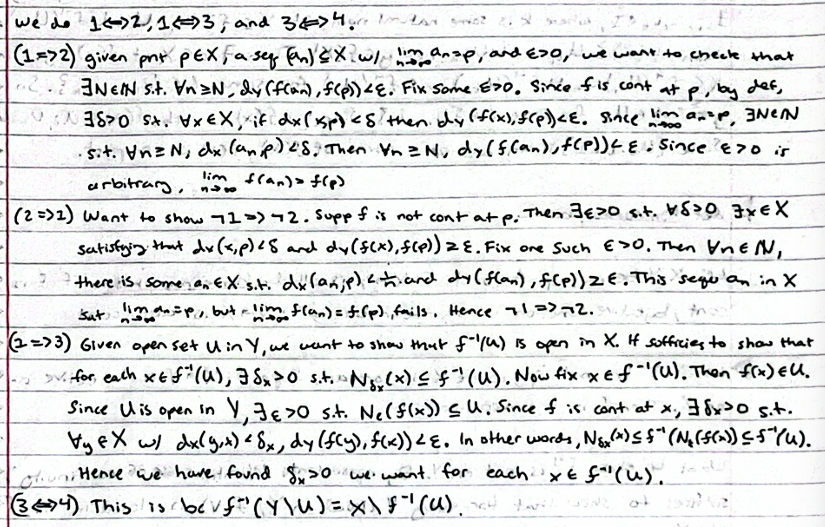 we do 1⇔2, 1⇔3, and 3⇔4.
(1⇒2) given pnt p∈X, a seq (an)⊆X w/ lim n→∞ an=p, and ε>0, we want to check that
∃N∈ℕ s.t. ∀n≥N, dy(f(an), f(p))<ε. Fix some ε>0. Since f is cont at p, by def,
∃δ>0 s.t. ∀x∈X, if dx(x,p)<δ then dy(f(x),f(p))<ε. Since lim n→∞ an=p, ∃N∈ℕ
s.t. ∀n≥N, dx(an,p)<δ. Then ∀n≥N, dy(f(an), f(p))<ε. Since ε>0 is
arbitrary, lim n→∞ f(an)=f(p)
(2⇒1) Want to show ¬1⇒¬2. Supp f is not cont at p. Then ∃ε>0 s.t. ∀δ>0 ∃x∈X
satisfying that dx(x,p)<δ and dy(f(x),f(p))≥ε. Fix one such ε>0. Then ∀n∈ℕ,
there is some an∈X s.t. dx(an,p)<1/n and dy(f(an), f(p))≥ε. This seqn an in X
sat lim n→∞ an=p, but lim n→∞ f(an)=f(p) fails. Hence ¬1⇒¬2.
(1⇒3) Given open set U in Y, we want to show that f⁻¹(U) is open in X. It sufficies to show that
for each x∈f⁻¹(U), ∃δx>0 s.t. Nδx(x)⊆f⁻¹(U). Now fix x∈f⁻¹(U). Then f(x)∈U.
Since U is open in Y, ∃ε>0 s.t. Nε(f(x))⊆U. Since f is cont at x, ∃δx>0 s.t.
∀y∈X w/ dx(y,x)<δx, dy(f(y), f(x))<ε. In other words, Nδx(x)⊆f⁻¹(Nε(f(x))⊆f⁻¹(U).
Hence we have found δx>0 we want for each x∈f⁻¹(U).
(3⇔4) This is bc f⁻¹(Y\U)=X\f⁻¹(U).